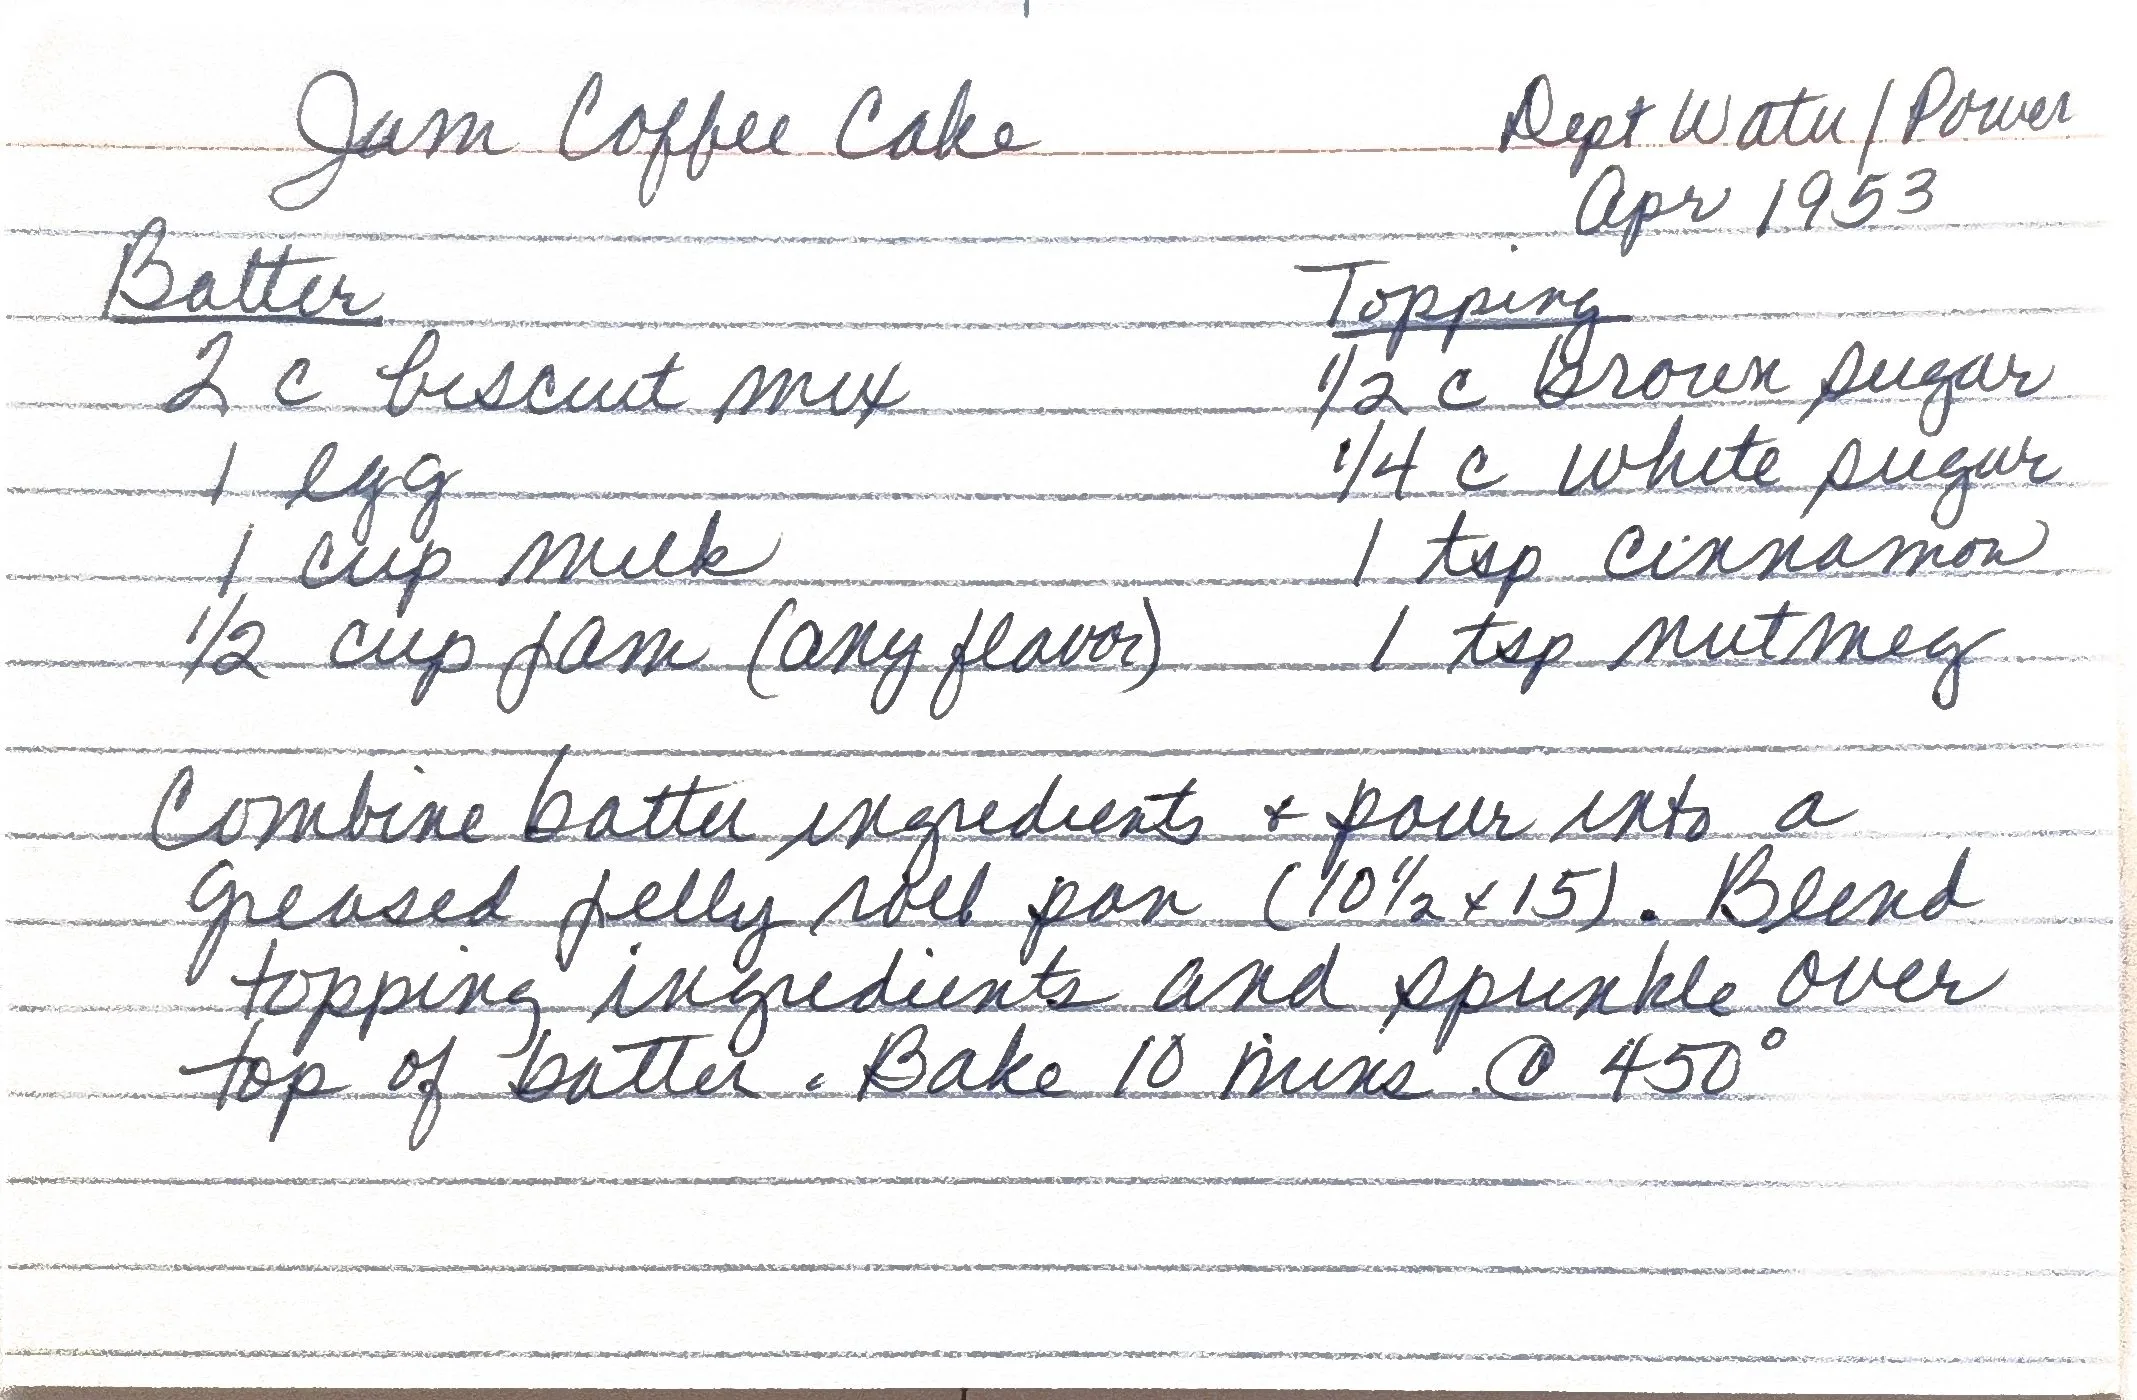 Jam Coffee Cake
Dept Water/Power
Apr 1953
Batter
2 c biscuit mix
1 egg
1 cup milk
1/2 cup jam (any flavor)
Topping
1/2 c brown sugar
1/4 c white sugar
1 tsp cinnamon
1 tsp nutmeg
Combine batter ingredients + pour into a
greased jelly roll pan (10 1/2 x 15). Blend
topping ingredients and sprinkle over
top of batter. Bake 10 mins @ 450°